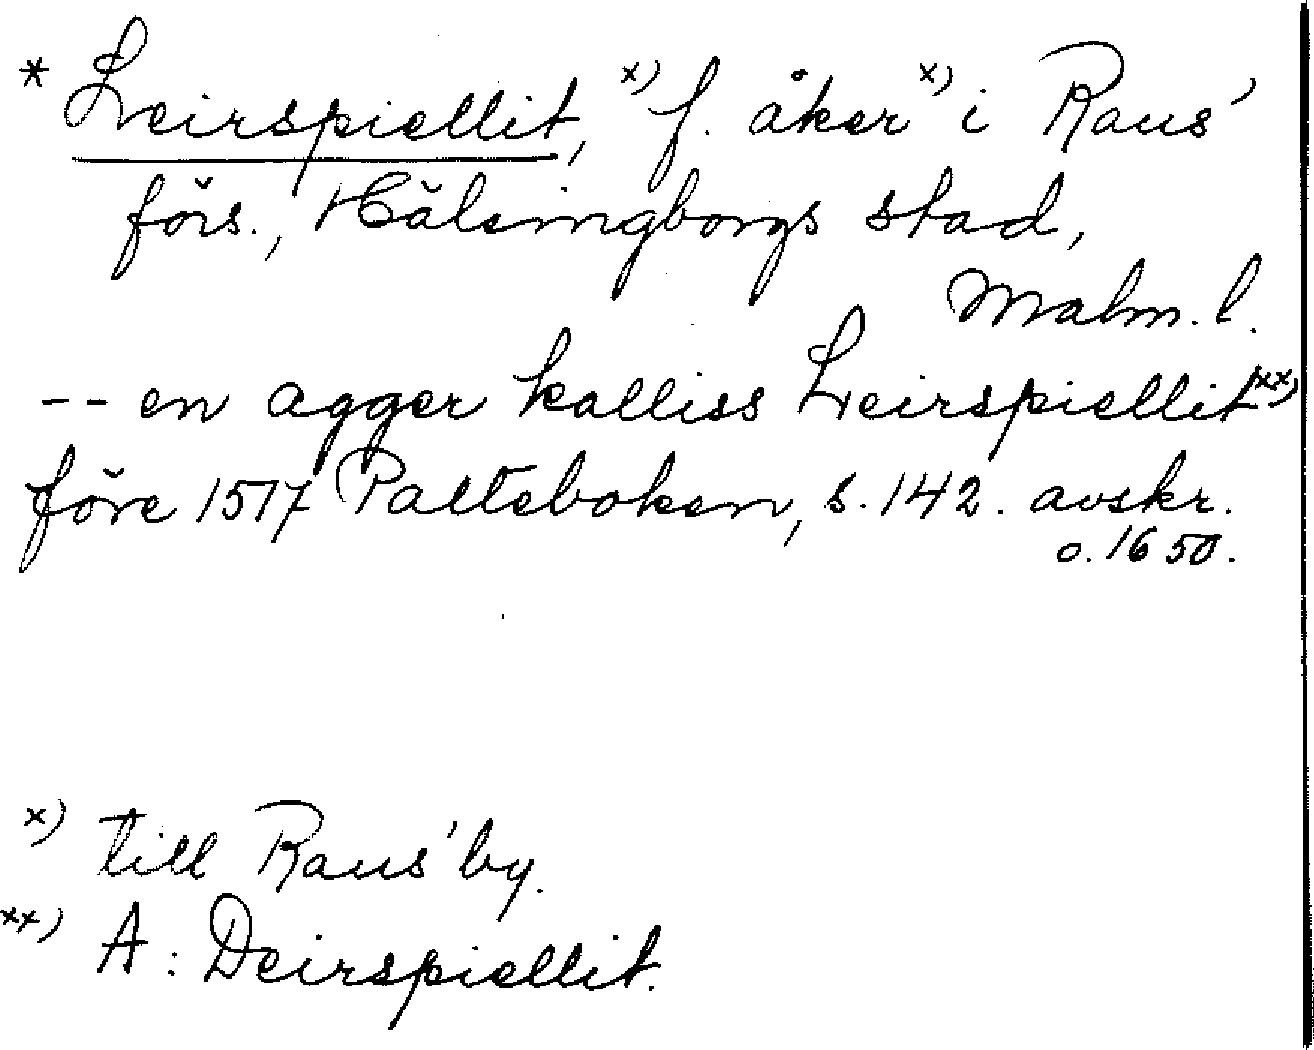 * Leirspiellit, x) f. åker x) i Raus'
förs., Hälsingborgs stad,
Malm. l.
-- en agger kalliss Leirspiellit xx)
före 1517 Palteboken, s. 142. avskr.
o. 1650.
x) till Raus' by.
xx) A: Deirspiellit.